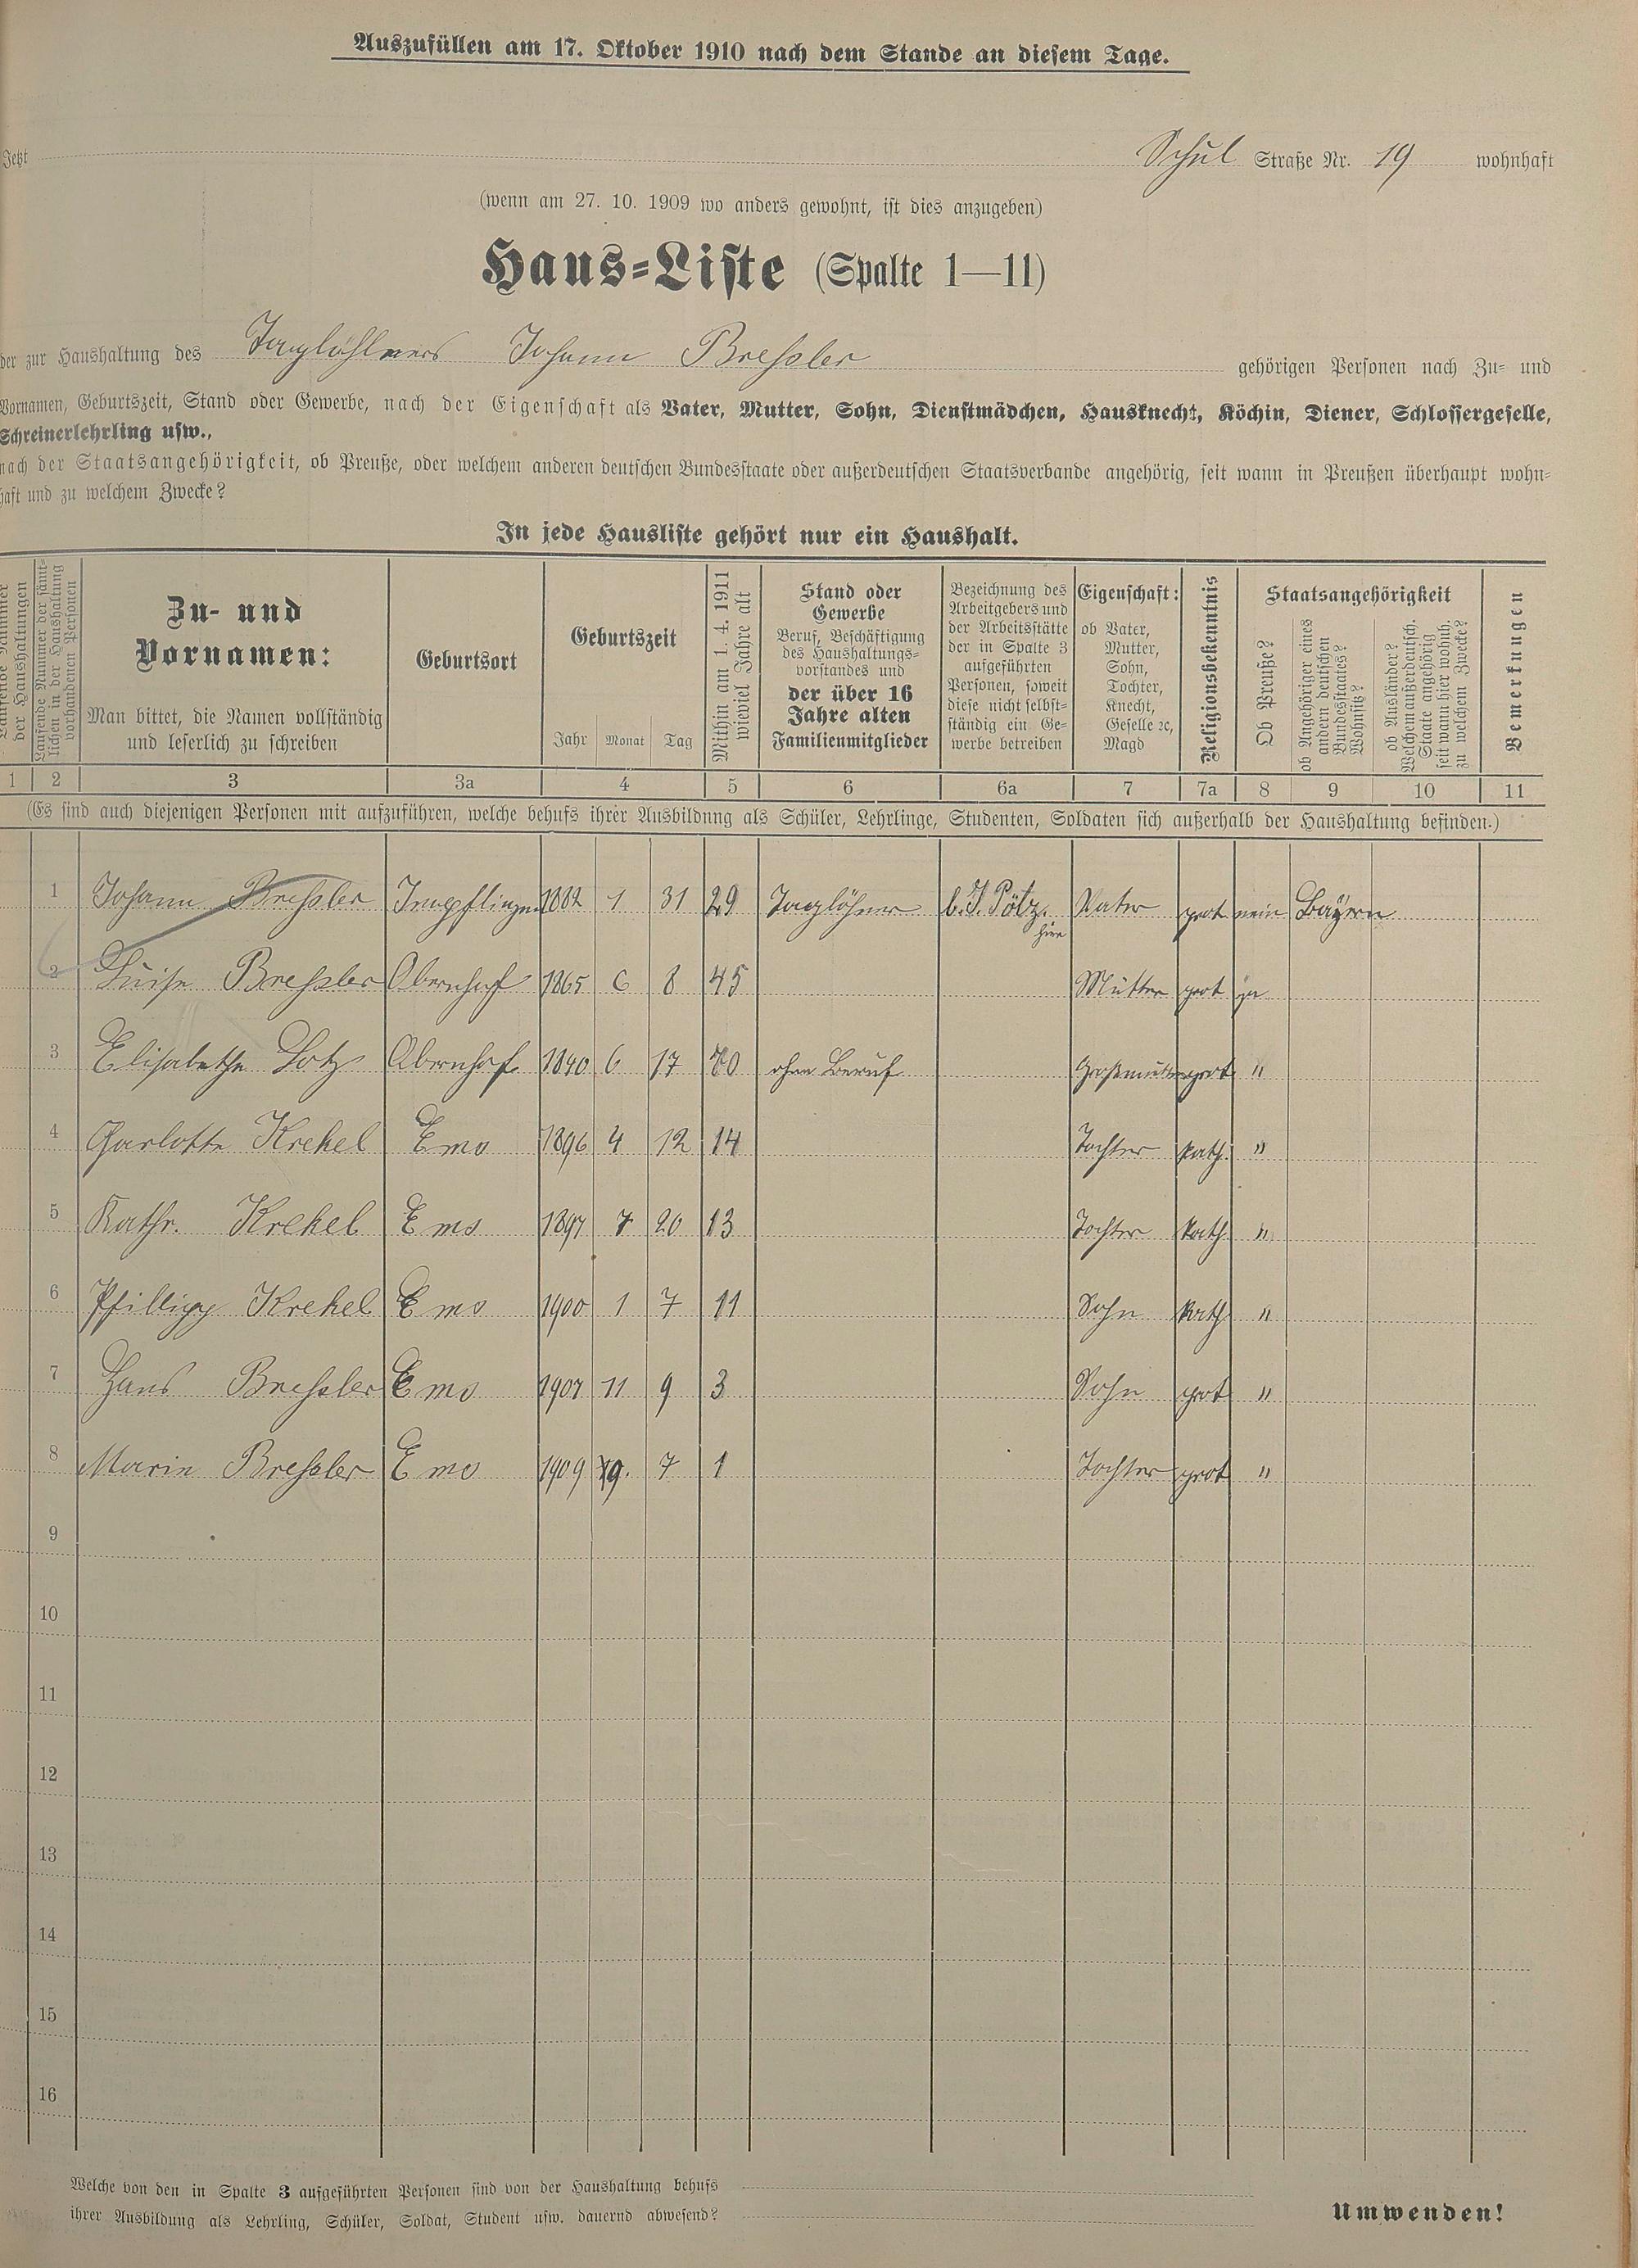 Auszufüllen am 17. Oktober 1910 nach dem Stande an diesem Tage.
Jetzt Schul Straße Nr. 19 wohnhaft
(wenn am 27. 10. 1909 wo anders gewohnt, ist dies anzugeben)
Haus-Liste (Spalte 1—11)
der zur Haushaltung des Taglöhners Johann Bressler gehörigen Personen nach Zu- und
Vornamen, Geburtszeit, Stand oder Gewerbe, nach der Eigenschaft als Vater, Mutter, Sohn, Dienstmädchen, Hausknecht, Köchin, Diener, Schlossergeselle,
Schreinerlehrling usw.,
nach der Staatsangehörigkeit, ob Preuße, oder welchem anderen deutschen Bundesstaate oder außerdeutschen Staatsverbande angehörig, seit wann in Preußen überhaupt wohn-
haft und zu welchem Zwecke?
In jede Hausliste gehört nur ein Haushalt.
Laufende Nummer der Haushaltungen
Laufende Nummer der sämt-
lichen in der Haushaltung
vorhandenen Personen
Zu- und
Vornamen:
Man bittet, die Namen vollständig
und leserlich zu schreiben
Geburtsort
Geburtszeit
Jahr Monat Tag
Mithin am 1. 4. 1911
wieviel Jahre alt
Stand oder
Gewerbe
Beruf, Beschäftigung
des Haushaltungs-
vorstandes und
der über 16
Jahre alten
Familienmitglieder
Bezeichnung des
Arbeitgebers und
der Arbeitsstätte
der in Spalte 3
aufgeführten
Personen, soweit
diese nicht selbst-
ständig ein Ge-
werbe betreiben
Eigenschaft:
ob Vater,
Mutter,
Sohn,
Tochter,
Knecht,
Geselle ꝛc,
Magd
Religionsbekenntnis
Staatsangehörigkeit
Ob Preuße?
ob Angehöriger eines
andern deutschen
Bundesstaates?
Wohnsitz?
ob Ausländer?
Welchem außerdeutsch.
Staate angehörig
seit wann hier wohnh.
zu welchem Zwecke?
Bemerkungen
1 2 3 3a 4 5 6 6a 7 7a 8 9 10 11
(Es sind auch diejenigen Personen mit aufzuführen, welche behufs ihrer Ausbildung als Schüler, Lehrlinge, Studenten, Soldaten sich außerhalb der Haushaltung befinden.)
1 Johann Bressler 1882 1 31 29 Taglöhner b. J. Pötz. hier Vater prot nein Bayern
2 Luise Bressler Obernhof 1865 6 8 45 Mutter prot ja
3 Elisabethe Lotz Obernhof 1840 6 17 70 ohne Beruf Großmutter prot "
4 Charlotte Krekel Ems 1896 4 12 14 Tochter kath. "
5 Kathr. Krekel Ems 1897 7 20 13 Tochter kath "
6 Phillipp Krekel Ems 1900 1 7 11 Sohn kath "
7 Hans Bressler Ems 1907 11 9 3 Sohn prot "
8 Marie Bressler Ems 1909 9. 7 1 Tochter prot "
9
10
11
12
13
14
15
16
Welche von den in Spalte 3 aufgeführten Personen sind von der Haushaltung behufs
ihrer Ausbildung als Lehrling, Schüler, Soldat, Student usw. dauernd abwesend?
Umwenden!